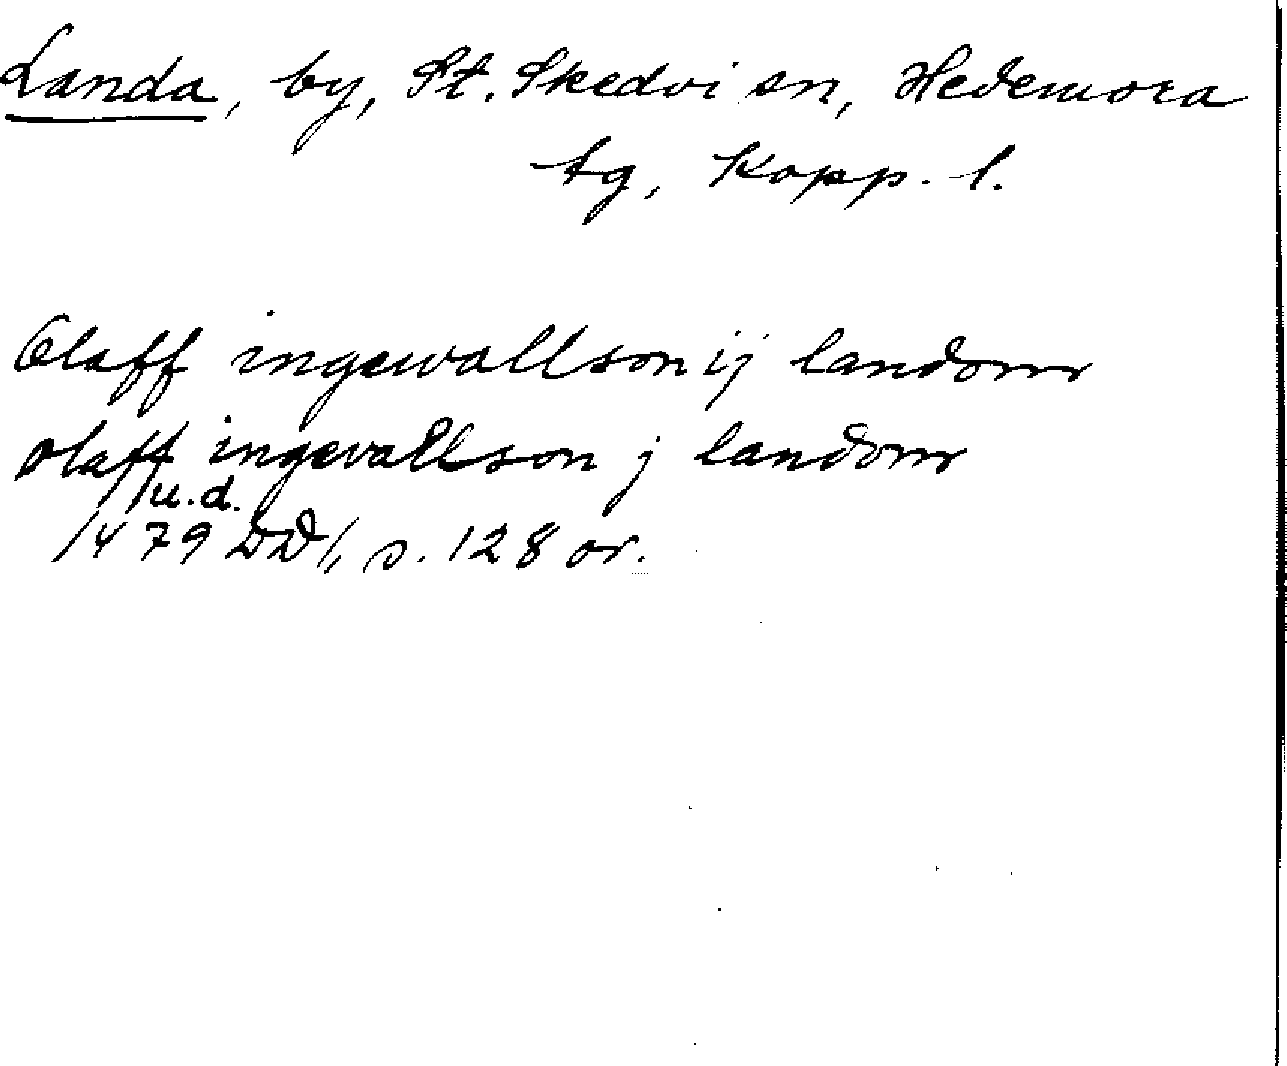 Landa, by, St. Skedvi sn, Hedemora
tg, Kopp. l.
Olaff ingewallson ij landom
olaff ingevallson j landom
u.d.
1479 DD 1, s. 128 or.